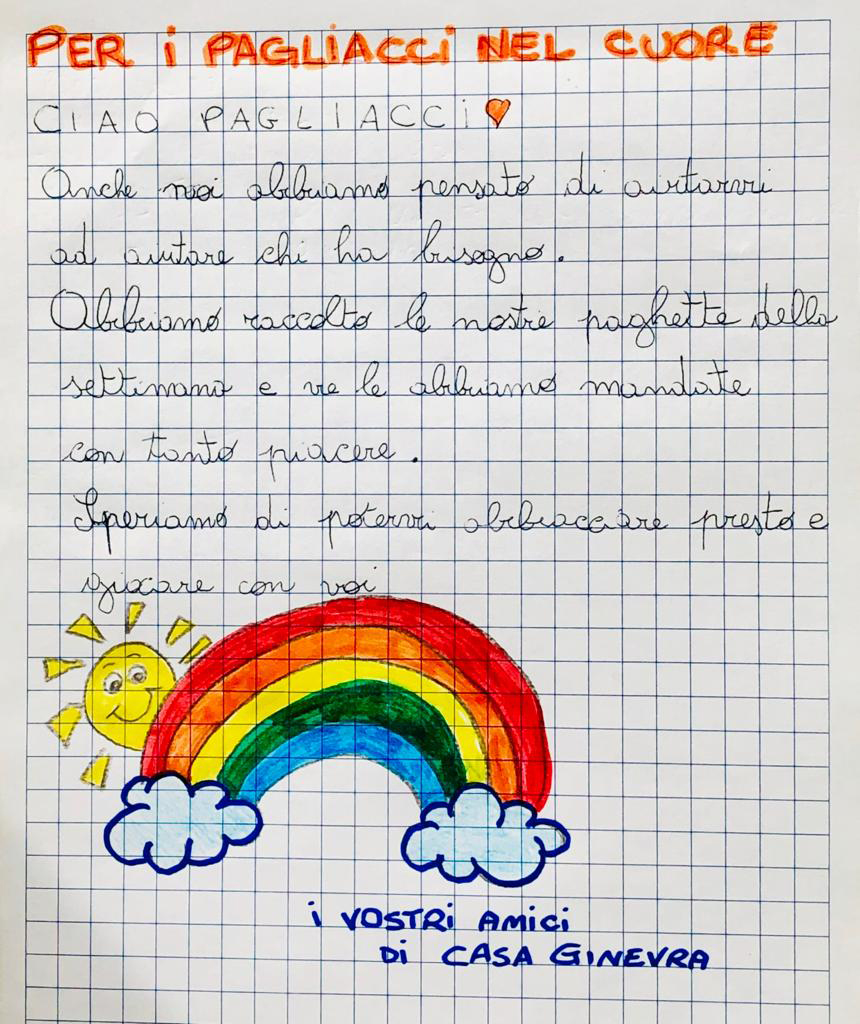 PER i PAGLIACCi NEL CUORE
CIAO PAGLIACCi
Anche noi abbiamo pensato di aiutarvi
ad aiutare chi ha bisogno.
Abbiamo raccolto le nostre paghette della
settimana e ve le abbiamo mandate
con tanto piacere.
Speriamo di potervi abbracciare presto e
giocare con voi
i VOSTRi AMiCi
Di CASA GiNEVRA